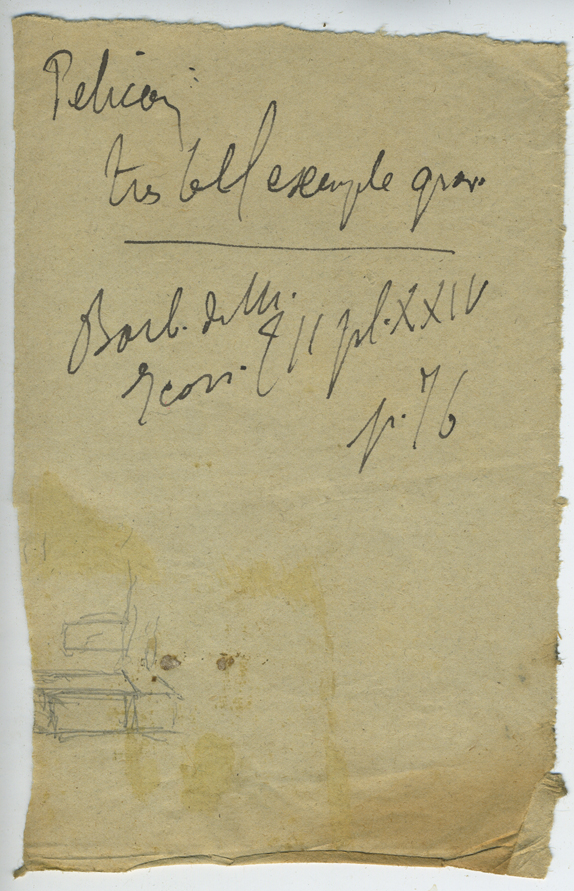 Pelican
très bel exemple grav.
Barb. de M.
Icon. t II pl. XXIV
p. 76